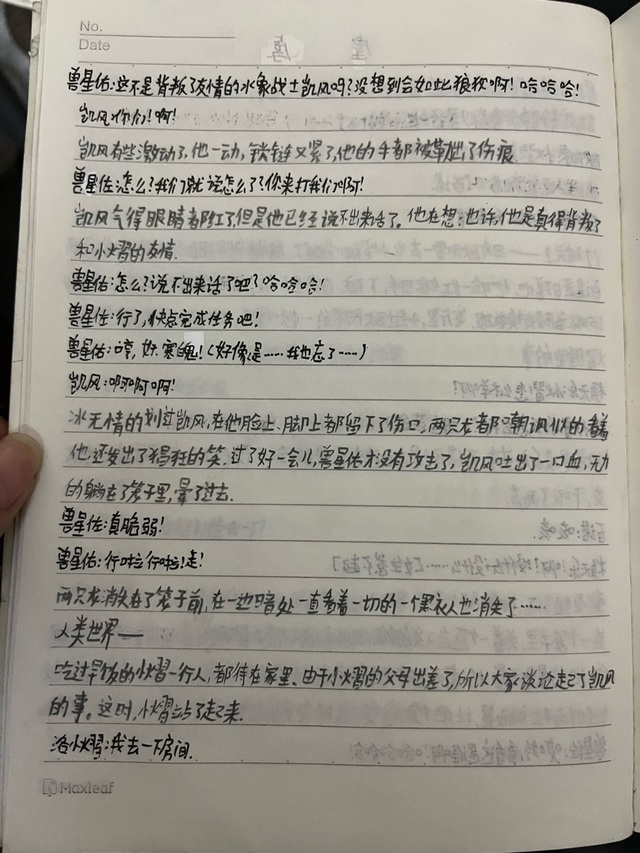 No.
Date
兽星佑:这不是背叛了友情的水象战士凯风吗?没想到会如此狼狈啊!哈哈哈!
凯风:你们!啊!
凯风有些激动了,他一动,铁链又紧了,他的手都被勒出了伤痕
兽星佐:怎么?我们就说怎么了?你来打我们啊!
凯风气得眼睛都红了,但是他已经说不出来话了。他在想:也许,他是真得背叛了
和小熠的友情.
兽星佑:怎么?说不出来话了吧?哈哈哈!
兽星佐:行了,快点完成任务吧!
兽星佑:哼,好.寒魄!(好像是……我也忘了……)
凯风:啊啊啊!
冰无情的划过凯风,在他脸上、脚上都留下了伤口,两只龙者都嘲讽似的看着
他,还发出了猖狂的笑.过了好一会儿,兽星佑才没有攻击了,凯风吐出了一口血,无力
的躺在了笼子里,晕了过去.
兽星佐:真脆弱!
兽星佑:行啦行啦!走!
两只龙消失在了笼子前,在一边暗处一直看着一切的一个黑衣人也消失了……
人类世界——
吃过早饭的小熠一行人,都待在家里、由于小熠的父母出差了,所以大家谈论起了凯风
的事。这时,小熠站了起来.
洛小熠:我去一下房间.
Maxleaf